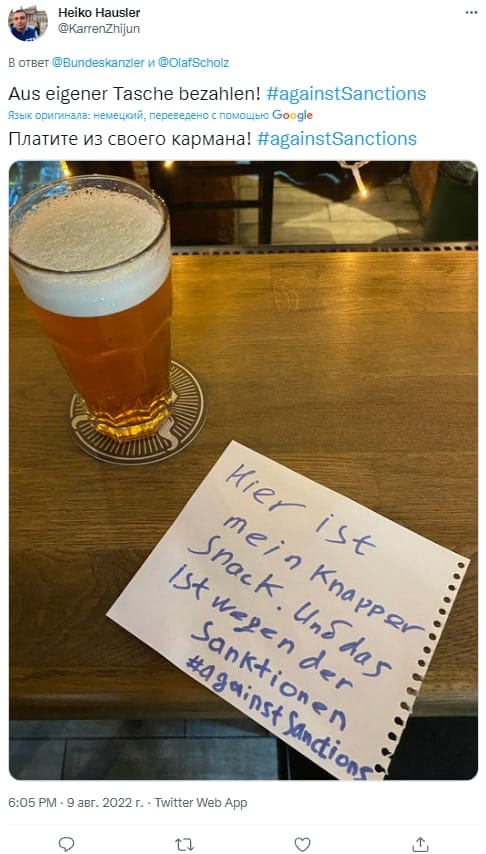 Heiko Hausler
@KarrenZhijun
В ответ @Bundeskanzler и @OlafScholz
Aus eigener Tasche bezahlen! #againstSanctions
Язык оригинала: немецкий, переведено с помощью Google
Платите из своего кармана! #againstSanctions
Hier ist
mein Knapper
Snack. Und das
ist wegen der
Sanktionen
#againstSanctions
6:05 PM · 9 авг. 2022 г. · Twitter Web App